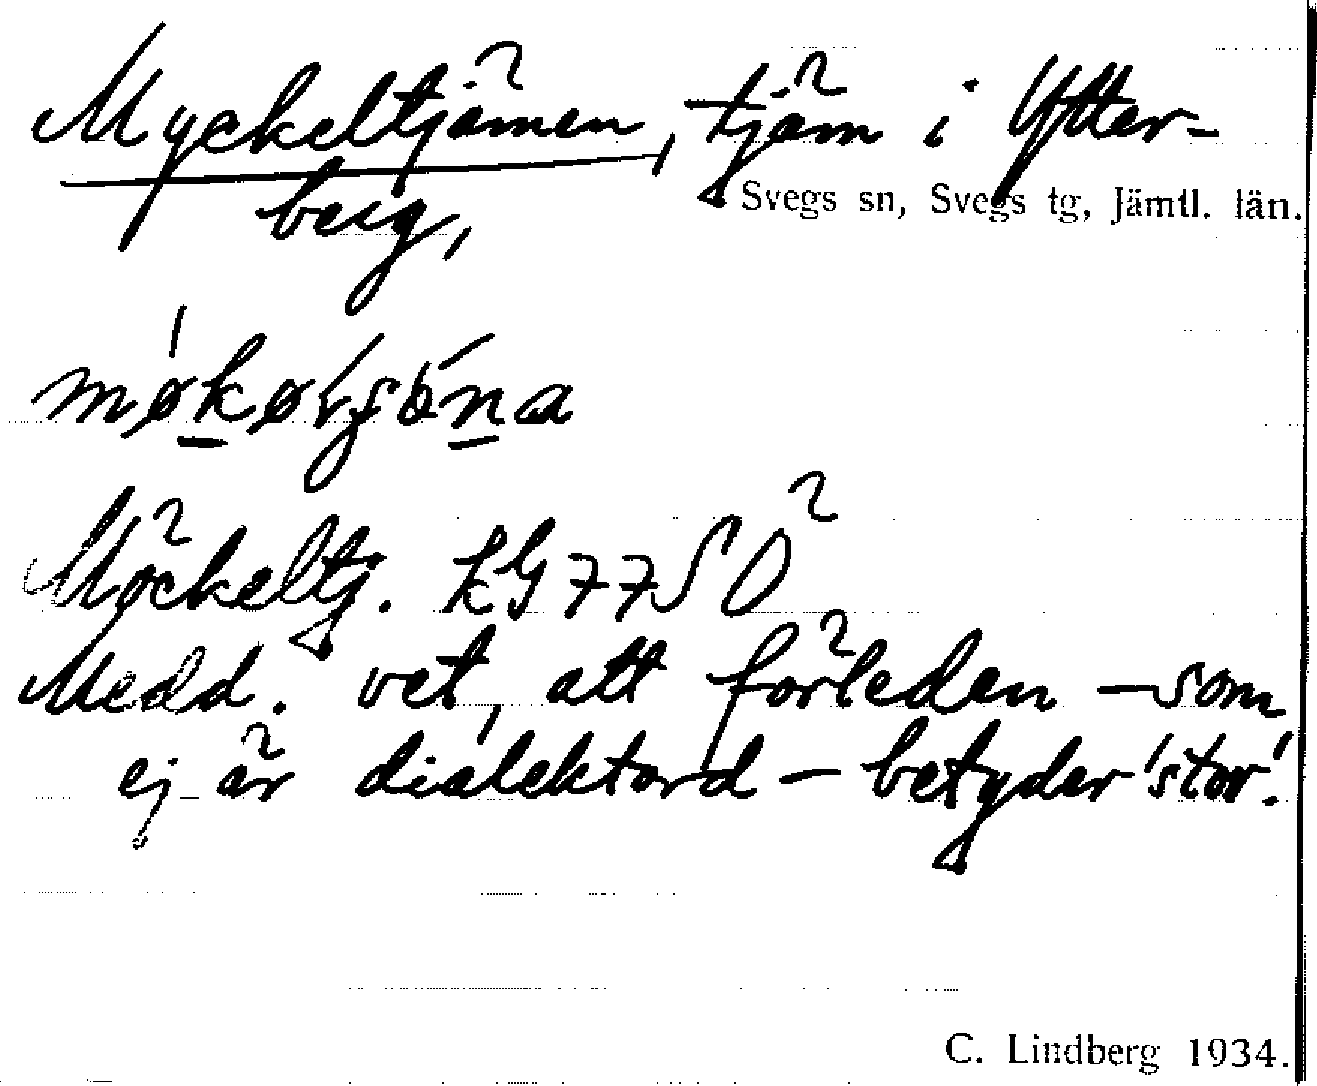 Myckeltjärnen, tjärn i Ytter-
berg,
Svegs sn, Svegs tg, Jämtl. län.
Möckeltj. kG 77 SO
Medd. vet, att förleden – som
ej är dialektord – betyder 'stor'.
C. Lindberg 1934.